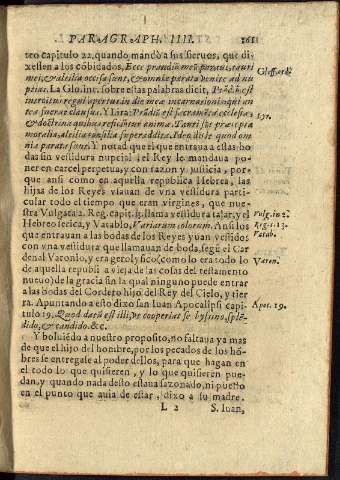 PARAGRAPH. IIII. 261
teo capitulo 22. quando mandò a sus sieruos, que di-
xessen a los cõbidados, Ecce prandiũ meũ paraui, tauri
mei, & altilia occisa sunt, & omnia parata venite ad nu
ptias. La Glo. int. sobre estas palabras dicit, Prãdiũ est
introitus regni apertus in die meæ incarnationis qui an
tea fuerat clausus. Y Lira: Prãdiũ est sacramẽta ecclesiæ,
& doctrina quibus reficiũtur animæ. Tauri sut præcepta
moralia, altilia cõsilia superaddita. Ideo dicit quod om
nia parata sunt. Y notad que el que entraua a estas bo
das sin vestidura nupcial, el Rey le mandaua po-
ner en carcel perpetua, y con razon y justicia, por-
que ansi como en aquella republica Hebrea, las
hijas de los Reyes vsauan de vna vestidura parti-
cular todo el tiempo que eran virgines, que nue-
stra Vulgata 2. Reg. capit. 13. llama vestidura talar, y el
Hebreo serica, y Vatablo, Variarum colorum. Ansi los
que entrauan a las bodas de los Reyes yuan vestidos
con vna vestidura que llamauan de boda, segũ el Car
denal Varonio, y era geroglyfico (como lo era todo lo
de aquella republica vieja de las cosas del testamento
nueuo) de la gracia sin la qual ninguno puede entrar
a las bodas del Cordero hijo del Rey del Cielo, y tier
ra. Apuntando a esto dixo san Iuan Apocalipsi capi-
tulo 19. Quod datũ est illi, vt cooperiat se byssino, splẽ-
dido, & candido. &c.
Y boluiẽdo a nuestro proposito, no faltaua ya mas
de que el hijo del hombre, por los pecados de los hõ-
bres se entregasse al poder dellos, para que hagan en
el todo lo que quisieren, y lo que quisieren pue-
dan, y quando nada desto estaua sazonado, ni puesto
en el punto que auia de estar, dixo a su madre.
L 2 S. Iuan,
Lyr.
Vulg. in 2.
Reg. c. 13.
Vatab.
Varon.
Apoc. 19.